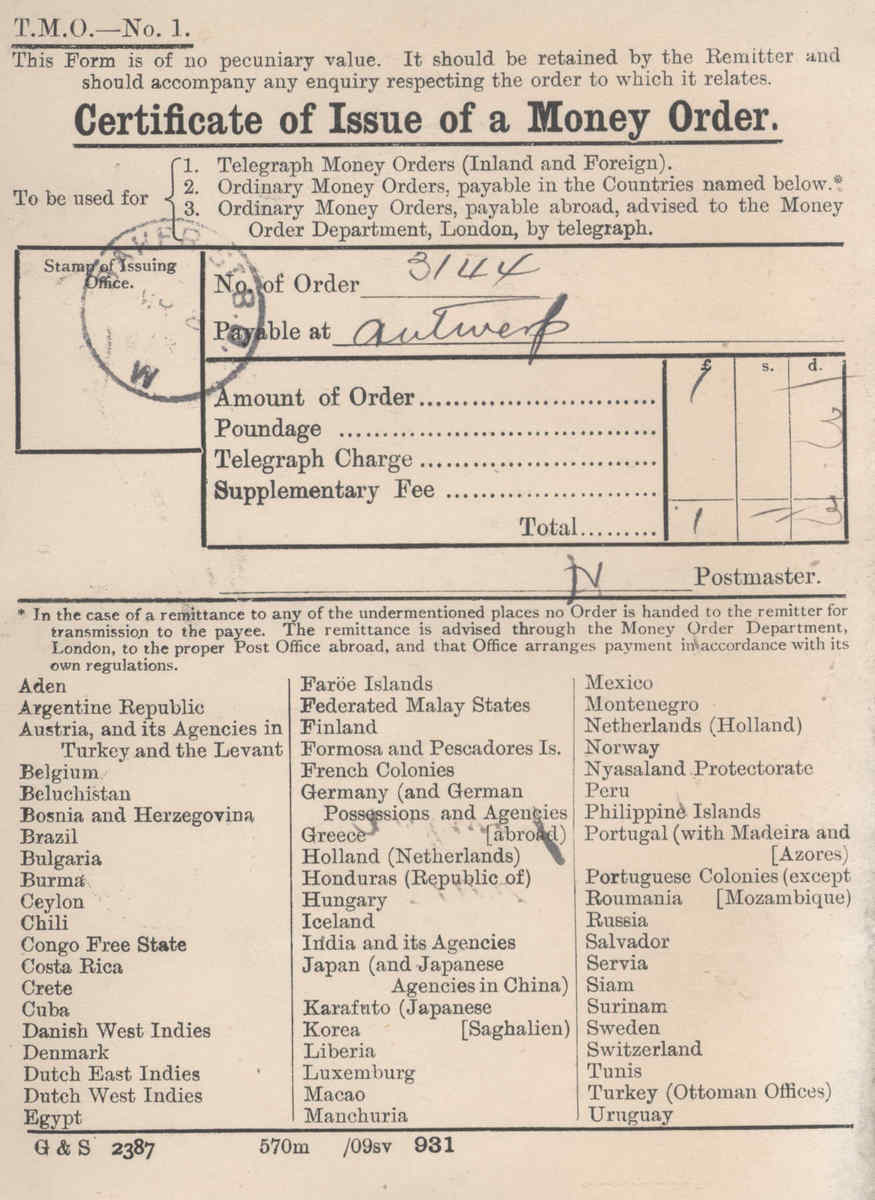 T.M.O.—No. 1.
This Form is of no pecuniary value. It should be retained by the Remitter and
should accompany any enquiry respecting the order to which it relates.
Certificate of Issue of a Money Order.
To be used for
1. Telegraph Money Orders (Inland and Foreign).
2. Ordinary Money Orders, payable in the Countries named below.*
3. Ordinary Money Orders, payable abroad, advised to the Money
Order Department, London, by telegraph.
Stamp of Issuing
Office.
No. of Order 3144
Payable at Antwerp
£ s. d.
Amount of Order........................... 1 — —
Poundage .................................... 3
Telegraph Charge ...........................
Supplementary Fee ........................
Total......... 1 — 3
N Postmaster.
* In the case of a remittance to any of the undermentioned places no Order is handed to the remitter for
transmission to the payee. The remittance is advised through the Money Order Department,
London, to the proper Post Office abroad, and that Office arranges payment in accordance with its
own regulations.
Aden
Argentine Republic
Austria, and its Agencies in
Turkey and the Levant
Belgium
Beluchistan
Bosnia and Herzegovina
Brazil
Bulgaria
Burma
Ceylon
Chili
Congo Free State
Costa Rica
Crete
Cuba
Danish West Indies
Denmark
Dutch East Indies
Dutch West Indies
Egypt
Faröe Islands
Federated Malay States
Finland
Formosa and Pescadores Is.
French Colonies
Germany (and German
Possessions and Agencies
Greece [abroad)
Holland (Netherlands)
Honduras (Republic of)
Hungary
Iceland
India and its Agencies
Japan (and Japanese
Agencies in China)
Karafuto (Japanese
Korea [Saghalien)
Liberia
Luxemburg
Macao
Manchuria
Mexico
Montenegro
Netherlands (Holland)
Norway
Nyasaland Protectorate
Peru
Philippine Islands
Portugal (with Madeira and
[Azores)
Portuguese Colonies (except
Roumania [Mozambique)
Russia
Salvador
Servia
Siam
Surinam
Sweden
Switzerland
Tunis
Turkey (Ottoman Offices)
Uruguay
G & S 2387 570m /09sv 931